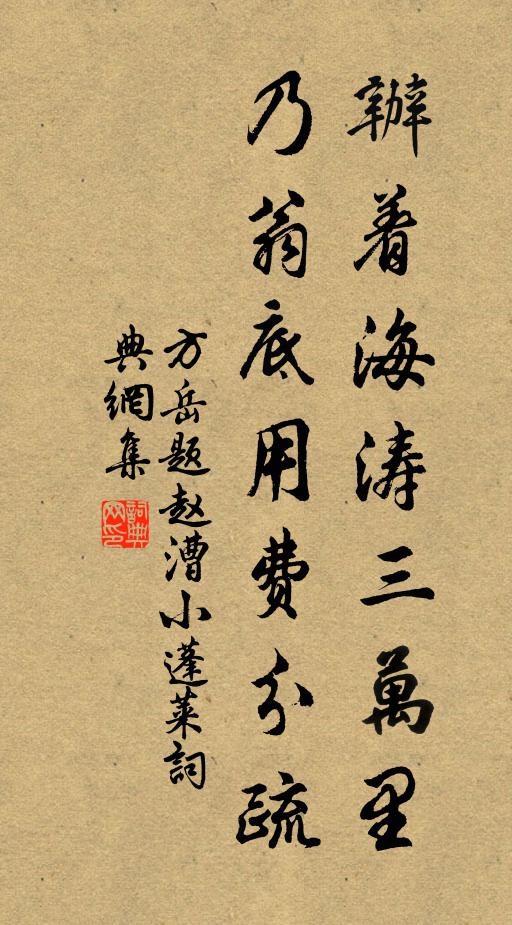 辦着海涛三萬里
乃翁底用費分疏
方岳题赵漕小蓬莱詞
典網集
詞典網印